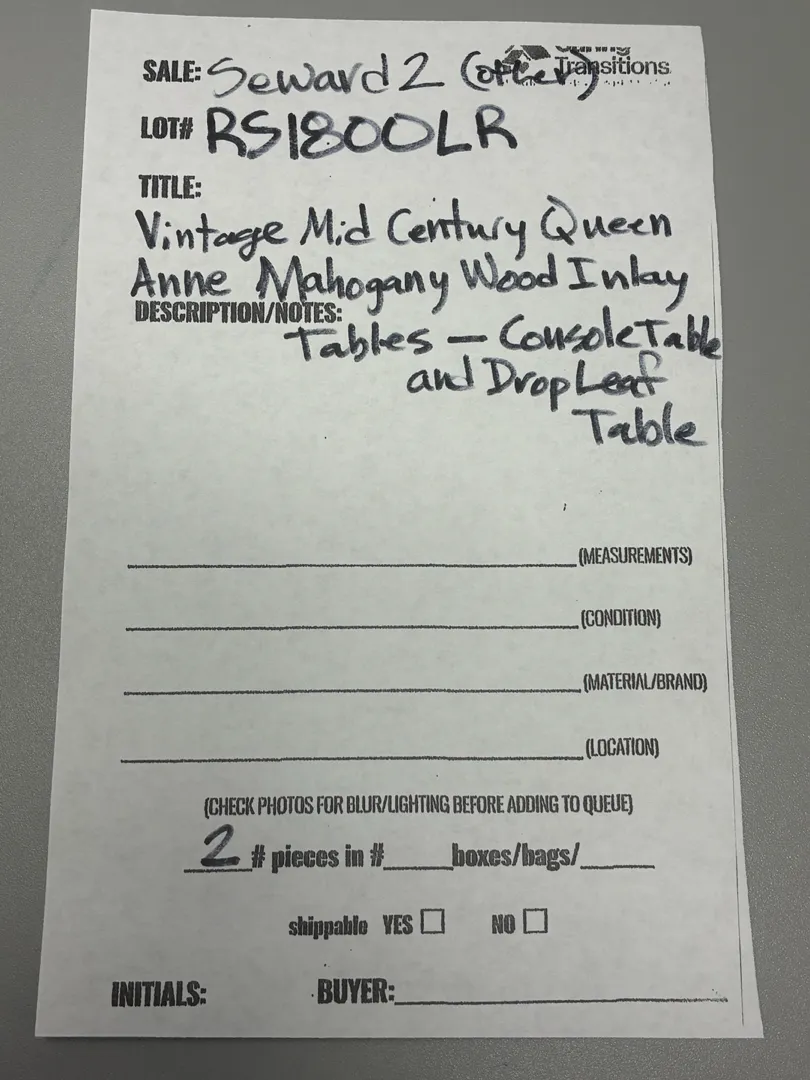 SALE: Seward 2 (other)
Transitions
LOT# RS1800LR
TITLE:
Vintage Mid Century Queen
Anne Mahogany Wood Inlay
DESCRIPTION/NOTES:
Tables — Console Table
and Drop Leaf
Table
(MEASUREMENTS)
(CONDITION)
(MATERIAL/BRAND)
(LOCATION)
(CHECK PHOTOS FOR BLUR/LIGHTING BEFORE ADDING TO QUEUE)
2 # pieces in #____boxes/bags/____
shippable YES ☐ NO ☐
INITIALS: BUYER:____